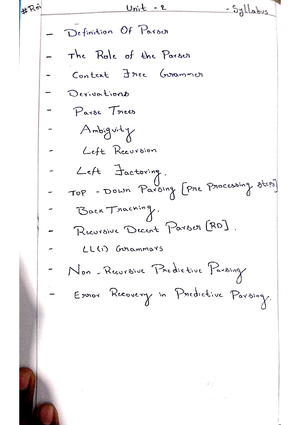 Unit - 2 - Syllabus
- Definition Of Parser
- The Role of the Parser
- Context Free Grammer
- Derivations
- Parse Trees
- Ambiguity
- Left Recursion
- Left Factoring.
- TOP - Down Parsing [Pre Processing Steps]
- Back Tracking.
- Recursive Decent Parser [RD].
- LL(1) Grammars
- Non - Recursive Predictive Parsing
- Error Recovery in Predictive Parsing.